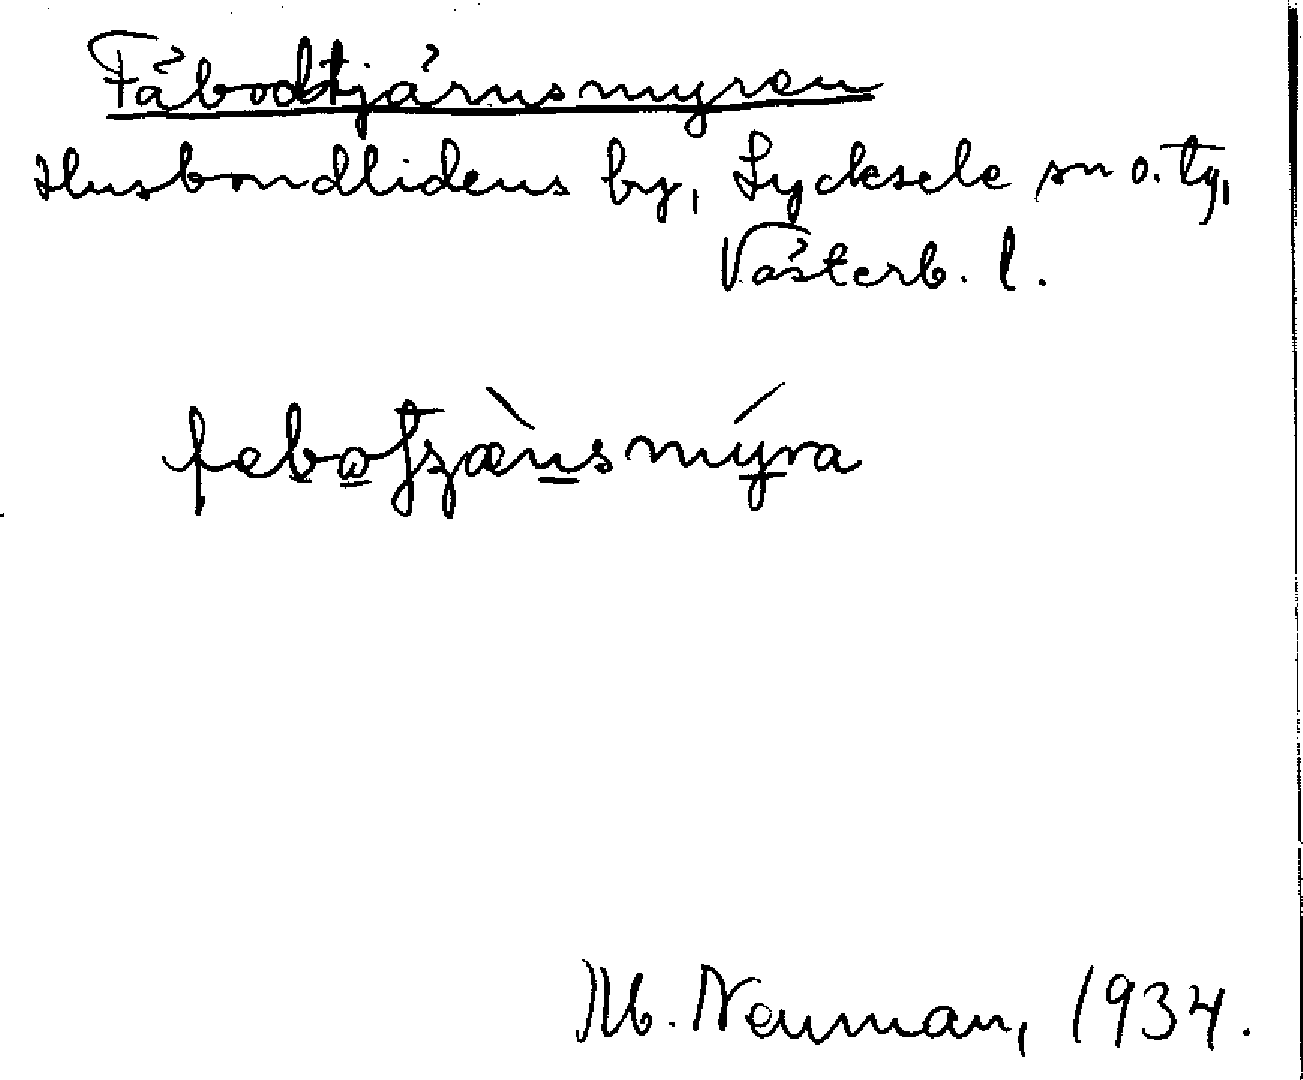 Fäbodtjärnsmyren
Husbondlidens by, Lycksele sn o. tg,
Västerb. l.
M. Neuman, 1934.